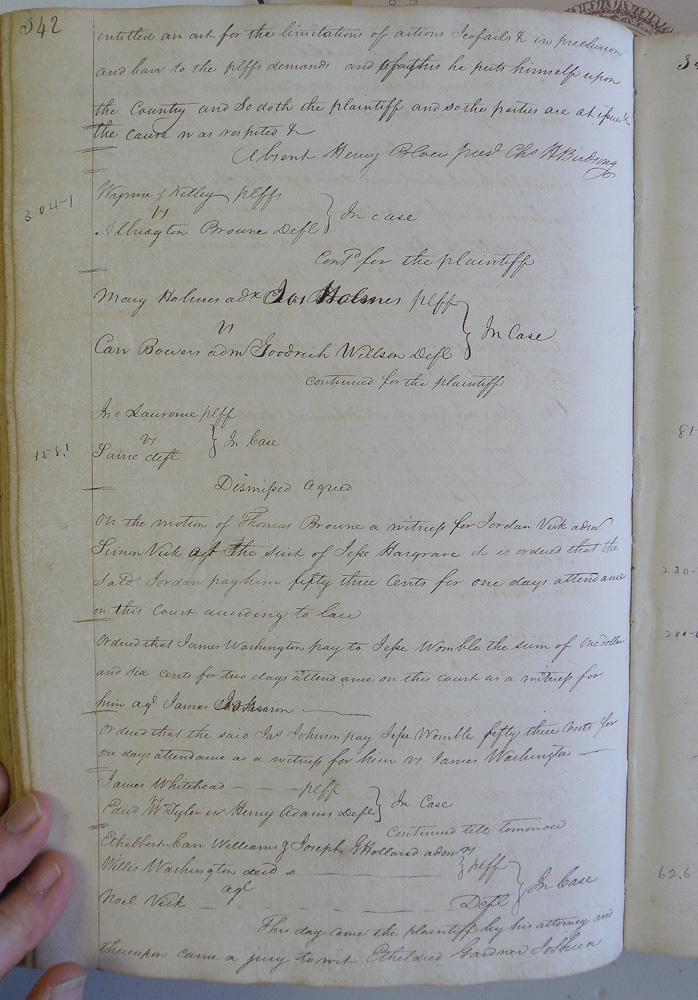 342
entitled an act for the limitations of actions Jeofails & in preclusion
and barr to the plffs demands and of this he puts himself upon
the Country and so doth the plaintiff and so the parties are at issue &
the cause was respited &
Absent Henry Blow pres.t Chs H Birdsong
304-1
Wynne & Kelley plffs
vs } In case
Albrigton Browne Deft
Con.d for the plaintiff
Mary Holmes adx Jas Holmes plff
vs } In Case
Carr Bowers adm Goodrich Willson Deft
continued for the plaintiff
Jno Laurence plff
158.1
vs } In Case
Same deft
Dismissed agreed
On the motion of Thomas Browne a witness for Jordan Vick adm
Simon Vick a.t the suit of Jesse Hargrave it is ordered that the
said Jordan pay him fifty three Cents for one days attendance
on this Court according to law
Ordered that James Washington pay to Jesse Womble the sum of one dollar
and six cents for two days attendance on this court as a witness for
him ag.t James Johnson
Ordered that the said Jas Johnson pay Jesse Womble fifty three Cents for
one days attendance as a witness for him vs James Washingto
James Whitehead - - - plff
vs } In Case
Edwd W Tyler exr Henry Adams Deft
Continued till tomorrow
Ethelbert Carr Williams & Joseph G Holland adm rs
Willis Washington decd } plff
ag.t } In Case
Noel Vick - - - Deft
This day came the plaintiff by his attorney and
thereupon came a jury to wit Etheldred Gardner Joshua
34
81-
230-
200-
62.6